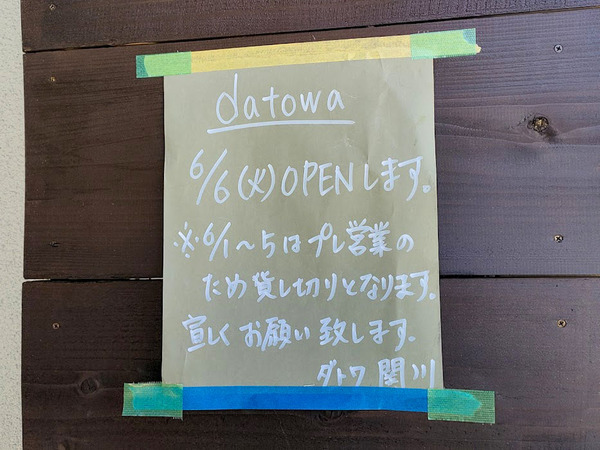 datowa
6/6(火)OPENします。
※6/1〜5はプレ営業の
ため貸し切りとなります。
宜しくお願い致します。
ダトワ 関川